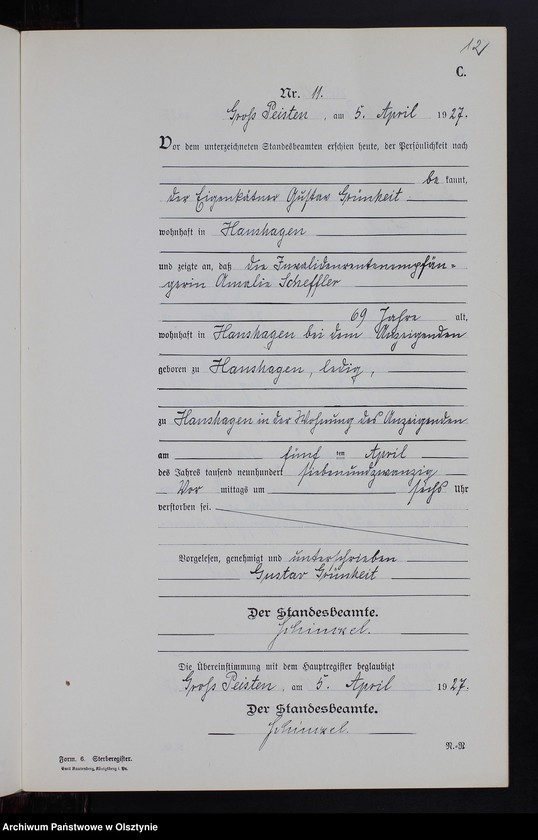 12
C.
Nr. 11.
Groß Peisten, am 5. April 1927.
Vor dem unterzeichneten Standesbeamten erschien heute, der Persönlichkeit nach
be kannt,
der Eigenkätner Gustav Grünheit
wohnhaft in Hanshagen
und zeigte an, daß die Invalidenrentenempfän-
gerin Amalie Scheffler
69 Jahre alt,
wohnhaft in Hanshagen bei dem Anzeigenden
geboren zu Hanshagen, ledig,
zu Hanshagen in der Wohnung des Anzeigenden
am fünf ten April
des Jahres tausend neunhundert siebenundzwanzig
Vor mittags um sechs Uhr
verstorben sei.
Vorgelesen, genehmigt und unterschrieben
Gustav Grünheit
Der Standesbeamte.
Schinkel.
Die Übereinstimmung mit dem Hauptregister beglaubigt
Groß Peisten, am 5. April 1927.
Der Standesbeamte.
Schinkel.
R.-R
Form. 6. Sterberegister.
Emil Rautenberg, Königsberg i. Pr.
Archiwum Państwowe w Olsztynie